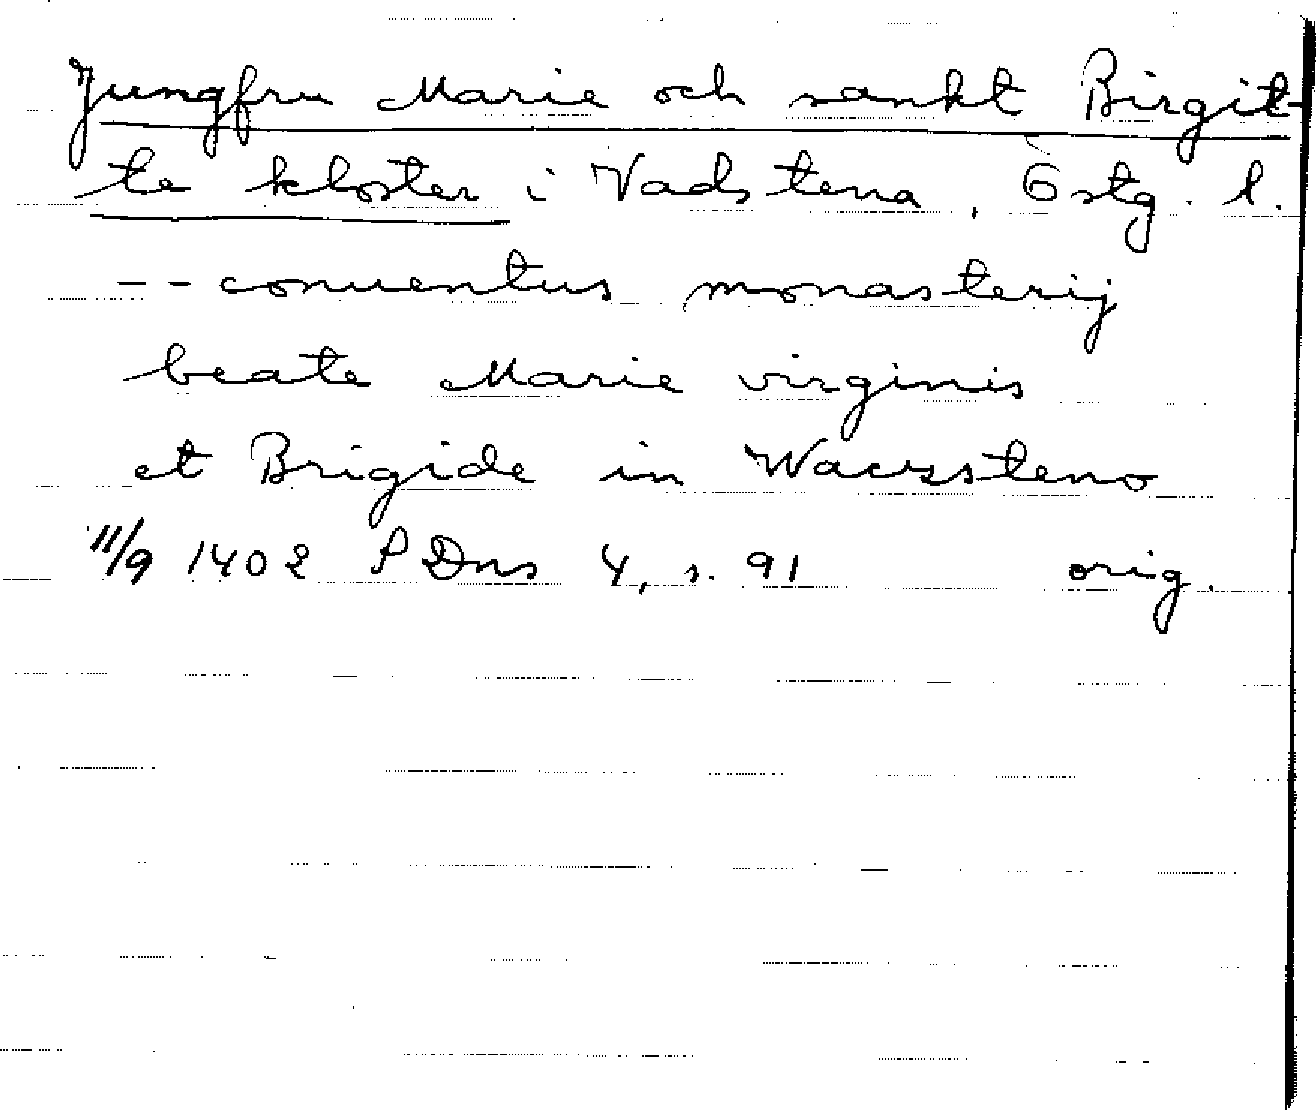 Jungfru Marie och sankt Birgit-
te kloster i Vadstena, Östg. l.
-- conuentus monasterij
beate Marie virginis
et Brigide in Waczsteno
11/9 1402 PDns 4, s. 91 orig.